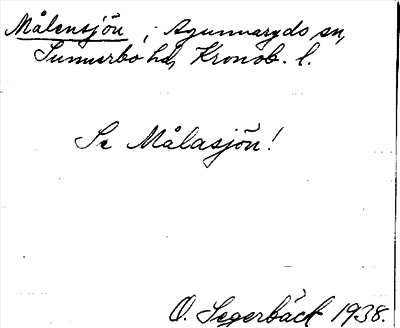 Målensjön, Agunnaryds sn,
Sunnerbo hd, Kronob. l.
Se Målasjön!
O. Segerbäck 1938.